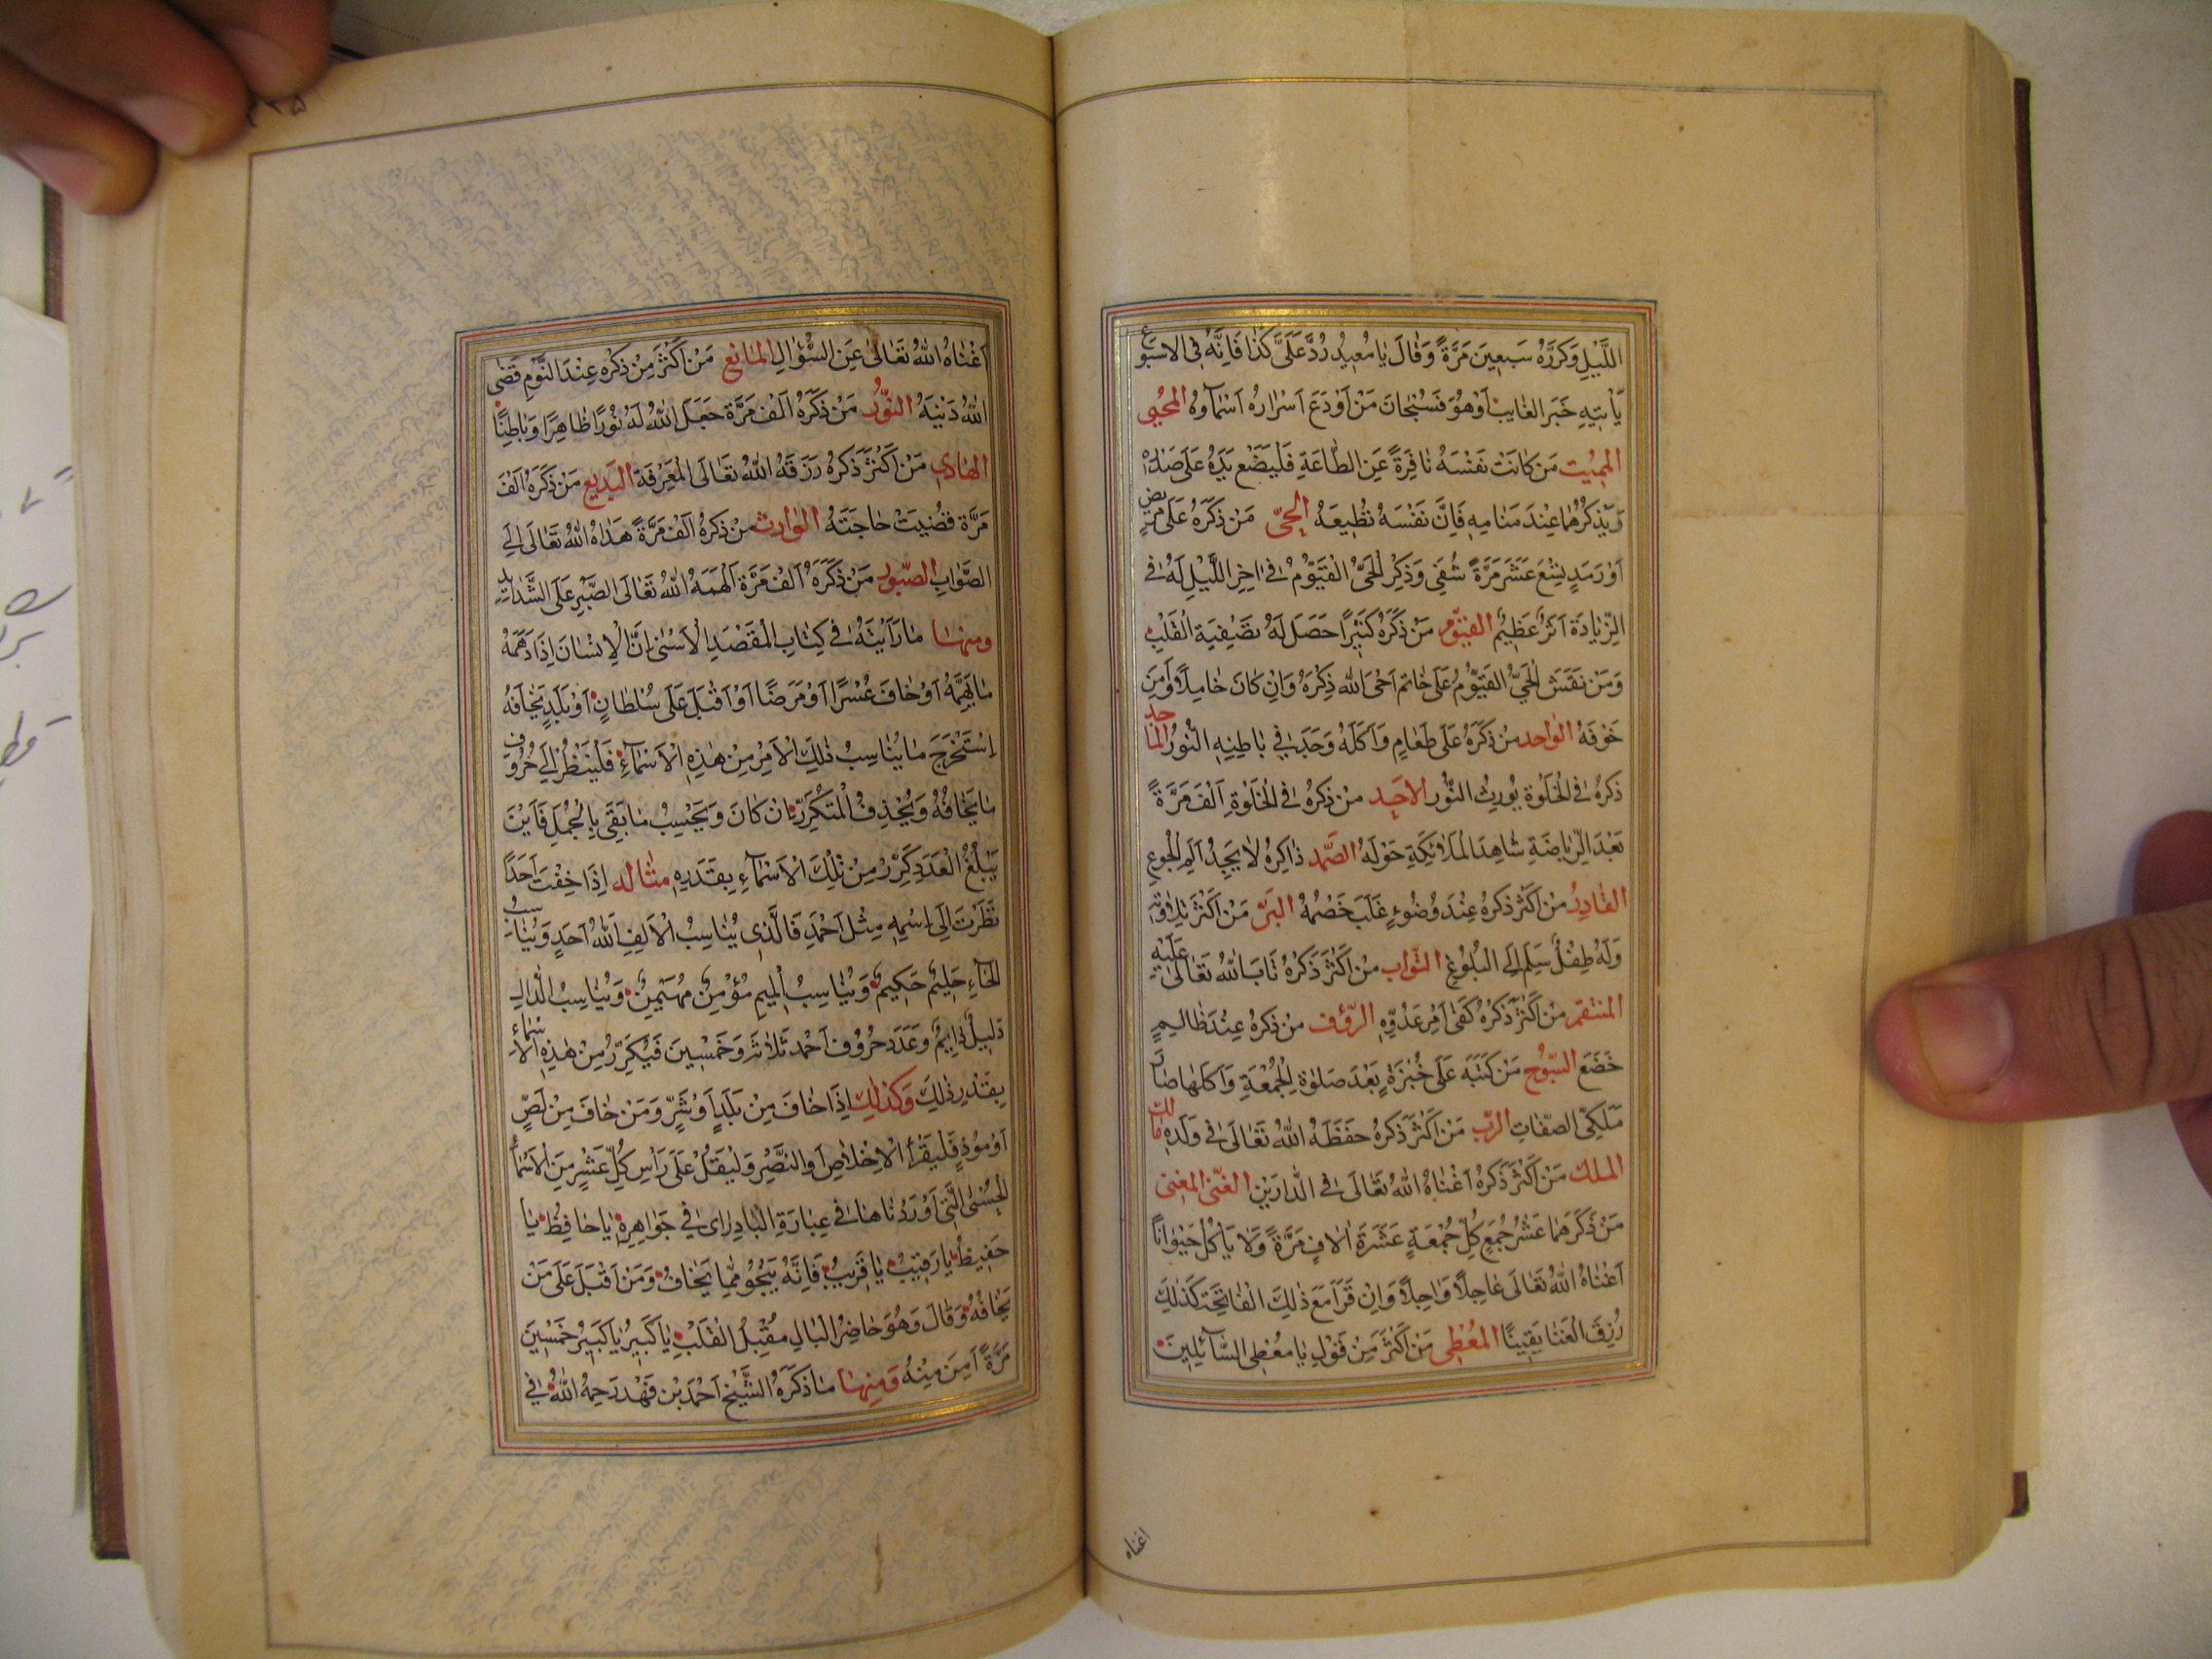 اللَّيْلِ وَكَرَّرَهُ سَبعِينَ مَرَّةً وَقَالَ يَا مُعِيدُ رُدَّ عَلَيَّ كَذَا فَاِنَّهُ فِي الاسْبُوعِ
يَأتِيهِ خَبَرَ الغَايبْ اَوْ هُوَ فَسُبْحَانَ مَنْ اَوْدَعَ اَسْرَارَهُ اَسْمَآوهُ المُحْيِي
المُمِيْت مَن كَانَتْ نَفْسَهُ نَافِرَةً عَنِ الطَّاعَةِ فَلْيَضَعْ يَدَهُ عَلَى صَدْرِهْ
وَيَذكُرْهُمَا عِنْدَ مَنَامِهِ فَاِنَّ نَفْسَهُ تُطِيعَهُ الحَيّ مَنْ ذَكَرَهُ عَلَى مَرِيضٍ
اَوْ رَمَدٍ تِسْعَ عَشَرَ مَرَّةً شُفِيَ وَذِكْرِ الْحَيِّ الْقَيُّومْ فِي اخِرِ اللَّيْلِ لَهُ فِي
الزِّيَادَةِ اَثَرٌ عَظِيْمٌ القَيّوم مَنْ ذَكَرَهُ كَثِيرًا حَصَلَ لَهُ تَصْفِيَةَ الْقَلْبِ
وَمَنْ نَقَشَ الْحَيُّ القَيُّومُ عَلَى خَاتَم اَحْيَ الله ذِكْرَهُ وَاِنْ كَانَ خَامِلًا وَاَمِنَ
خَوْفَهُ الوَاحد مَنْ ذَكَرَهُ عَلَى طَعَامٍ وَاَكَلَهُ وَجَدَ فِي بَاطِنِهِ النُّورُ المَاجد
ذِكْرُهُ فِي الْخَلْوَةِ يُورِثُ النُّور الاَحَد مَنْ ذكَرَهُ فِي الْخَلْوَةِ اَلْفَ مَرَّةً
بَعْدَ الرِّيَاضَةِ شَاهِدَ الْمَلَائِكَةِ حَوْلَهُ الصَّمد ذَاكِرُهُ لَا يَجِدُ اَلَمِ الْجُوعِ
القَادِرُ مَنْ اَكثَرَ ذِكرَهُ عِنْدَ وُضُوءٍ غَلَبَ خَصْمُهُ البَرّ مَنْ اَكْثَرَ تِلَاوَتِهِ
وَلَهُ طِفْلٌ سَلِمَ اِلَى الْبُلُوغِ التَّوَاب مَنْ اَكْثَرَ ذكْرَهُ تَابَ اللهُ تَعَالَى عَلَيْهِ
المُنتَقم مَنْ اَكْثَرَ ذِكْرَهُ كَفَى اَمْرِ عَدُوِّهِ الرَّؤُف مَنْ ذكَرَهُ عِنْدَ ظَالِمٍ
خَضَعَ السُّبُّوح مَنْ كَتَبَهُ عَلَى خُبْزَةٍ بَعْدَ صَلوةِ الْجُمُعَةِ وَاَكَلَهَا صَارَ
مَلَكِيّ الصِّفَاتِ الرَّبّ مَنْ اَكْثَرَ ذِكْرَهُ حَفِظَهُ اللهُ تَعَالَى فِي وَلَدِهِ مَالك
المُلك مَنْ اَكْثَرَ ذِكْرَهُ اَغْنَاهُ اللهُ تَعَالَى فِي الدَّارَيْنِ الغَنِيّ المُغْنِي
مَنْ ذَكَرَهُمَا عَشْرَ جُمَعٍ كُلَّ جُمْعَةٍ عَشَرَةَ الَافِ مَرَّةً وَلَا يَاكُلُ حَيْوَانًا
اَغْنَاهُ اللهُ تَعَالَى عَاجِلًا وَاجِلًا وَاِنْ قَرَاَ مَعَ ذَلِكَ الْفَاتِحَةَ كَذلِكَ
رُزِقَ الْغَنَا يَقِينًا المُعْطِي مَنْ اَكْثَرَ مِنْ قَوْلِ يَا مُعْطِيَ السَّآئِلِينَ
اغناه
اَغْنَاهُ اللهُ تَعَالَى عَنِ السُّؤَالِ المَانِع مَنْ اَكْثَرَ مِنْ ذِكْرِهِ عِنْدَ النَّوْمِ قَضَى
اللهُ دَيْنَهُ النُّورُ مَنْ ذَكَرَهُ اَلْفَ مَرَّةً جَعَلَ اللهُ لَهُ نُوْرًا ظَاهِرًا وَبَاطِنًا
الهَادِي مَنْ اَكْثَرَ ذكرَهُ رَزَقَهُ اللهُ تعَالَى الْمَعْرِفَةَ البَدِيع مَنْ ذَكَرَهُ اَلْفَ
مَرَّةٍ قُضِيَتْ حَاجَتَهُ الوَارِث مَنْ ذكَرَهُ اَلْفَ مَرَّةً هَدَاهُ اللهُ تَعَالَى اِلَى
الصَّوَابِ الصَّبُور مَنْ ذَكَرَهُ اَلْفَ مَرَّة اَلْهَمَهُ اللهُ تَعَالَى الصَّبْرِ عَلَى الشَّدَايِدِ
ومنهَا مَا رَاَيْتَهُ فِي كِتَابِ الْمَقْصَدِ الْاَسْنَى اِنَّ الْاِنْسَانَ اِذَا دَهَمَهُ
مَا يُهِمُّهُ اَوْ خَافَ عُسْرًا اَوْ مَرَضًا اَوْ اَقْبَلَ عَلَى سُلطَانٍ اَوْ بَلَدٍ يَخَافُهُ
اِسْتَخْرَجَ مَا يُنَاسِبُ ذلِكَ الْاَمْرِ مِنْ هذِهِ الْاَسْمَآءِ فَلْيَنْظُرْ اِلَى حُرُوفِ
مَا يَخَافُهُ وَيُحْذِفُ الْمُتَكَرِّرَ اِنْ كَانَ وَيَحْسِبُ مَا بَقِيَ بِالْجُمَلِ فَاَيْنَ
يَبْلُغُ الْعَدَد كَرِّرْ مِنْ تِلْكَ الْاَسْمَآءِ بِقَدَرِهِ مثَاله اِذَا خِفْتَ اَحَدًا
نَظَرْتَ اِلَى اِسْمِهِ مِثْلَ اَحْمَدِ فَالَّذِي يُنَاسِبُ الْاَلِفِ اَللهُ اَحَدٍ وَيُنَاسِبُ
الْحَاءِ حَلِيْمٌ حَكِيمٌ وَيُنَاسِبُ الْمِيمِ مُؤْمِنٌ مُهَيْمِنٌ وَيُنَاسِبُ الدَّالِ
دَلِيلٌ دَايِمٌ وَعَدَدَ حُرُوفِ اَحْمَد ثَلَاثَةَ وَخَمْسِينَ فَيُكَرِّرُ مِنْ هذِهِ الْاَسْمَاءِ
بِقَدْرِ ذلِكَ وَكَذلِكَ اِذَا خَافَ مِنْ بَلَدٍ اَوْ شَرٍّ وَمَنْ خَافَ مِنْ لِصٍّ
اَوْ مُوْذٍ فَلْيَقْرَأ الْاِخْلَاصِ وَالنَّصْرِ وَلْيَقُلْ عَلَى رَأْسِ كُلِّ عَشْرٍ مِنَ الْاَسْمَآءِ
الْحُسْنَى الَّتِي اَوْرَدْنَاهَا فِي عِبَارَةِ الْبَادِرَاي فِي جَوَاهِرِهِ يَا حَافِظُ يَا
حَفِيظُ يَا رَقِيبُ يَا قَرِيبُ فَاِنَّهُ يَنْجُو مِمَّا يَخَافُ وَمَنْ اَقْبَلَ عَلَى مَنْ
يَخَافُهُ وَقَالَ وَهُوَ حَاضِرُ الْبَالِ مُقْبِلُ الْقَلْبِ يَا كَبِيرُ يَا كَبِيرُ خَمْسِينَ
مَرَّةً اَمِنَ مِنْهُ وَمِنهَا مَا ذَكَرَهُ الشَّيْخ اَحْمَدَ بْن فَهْد رَحِمَهُ اللهُ فِي